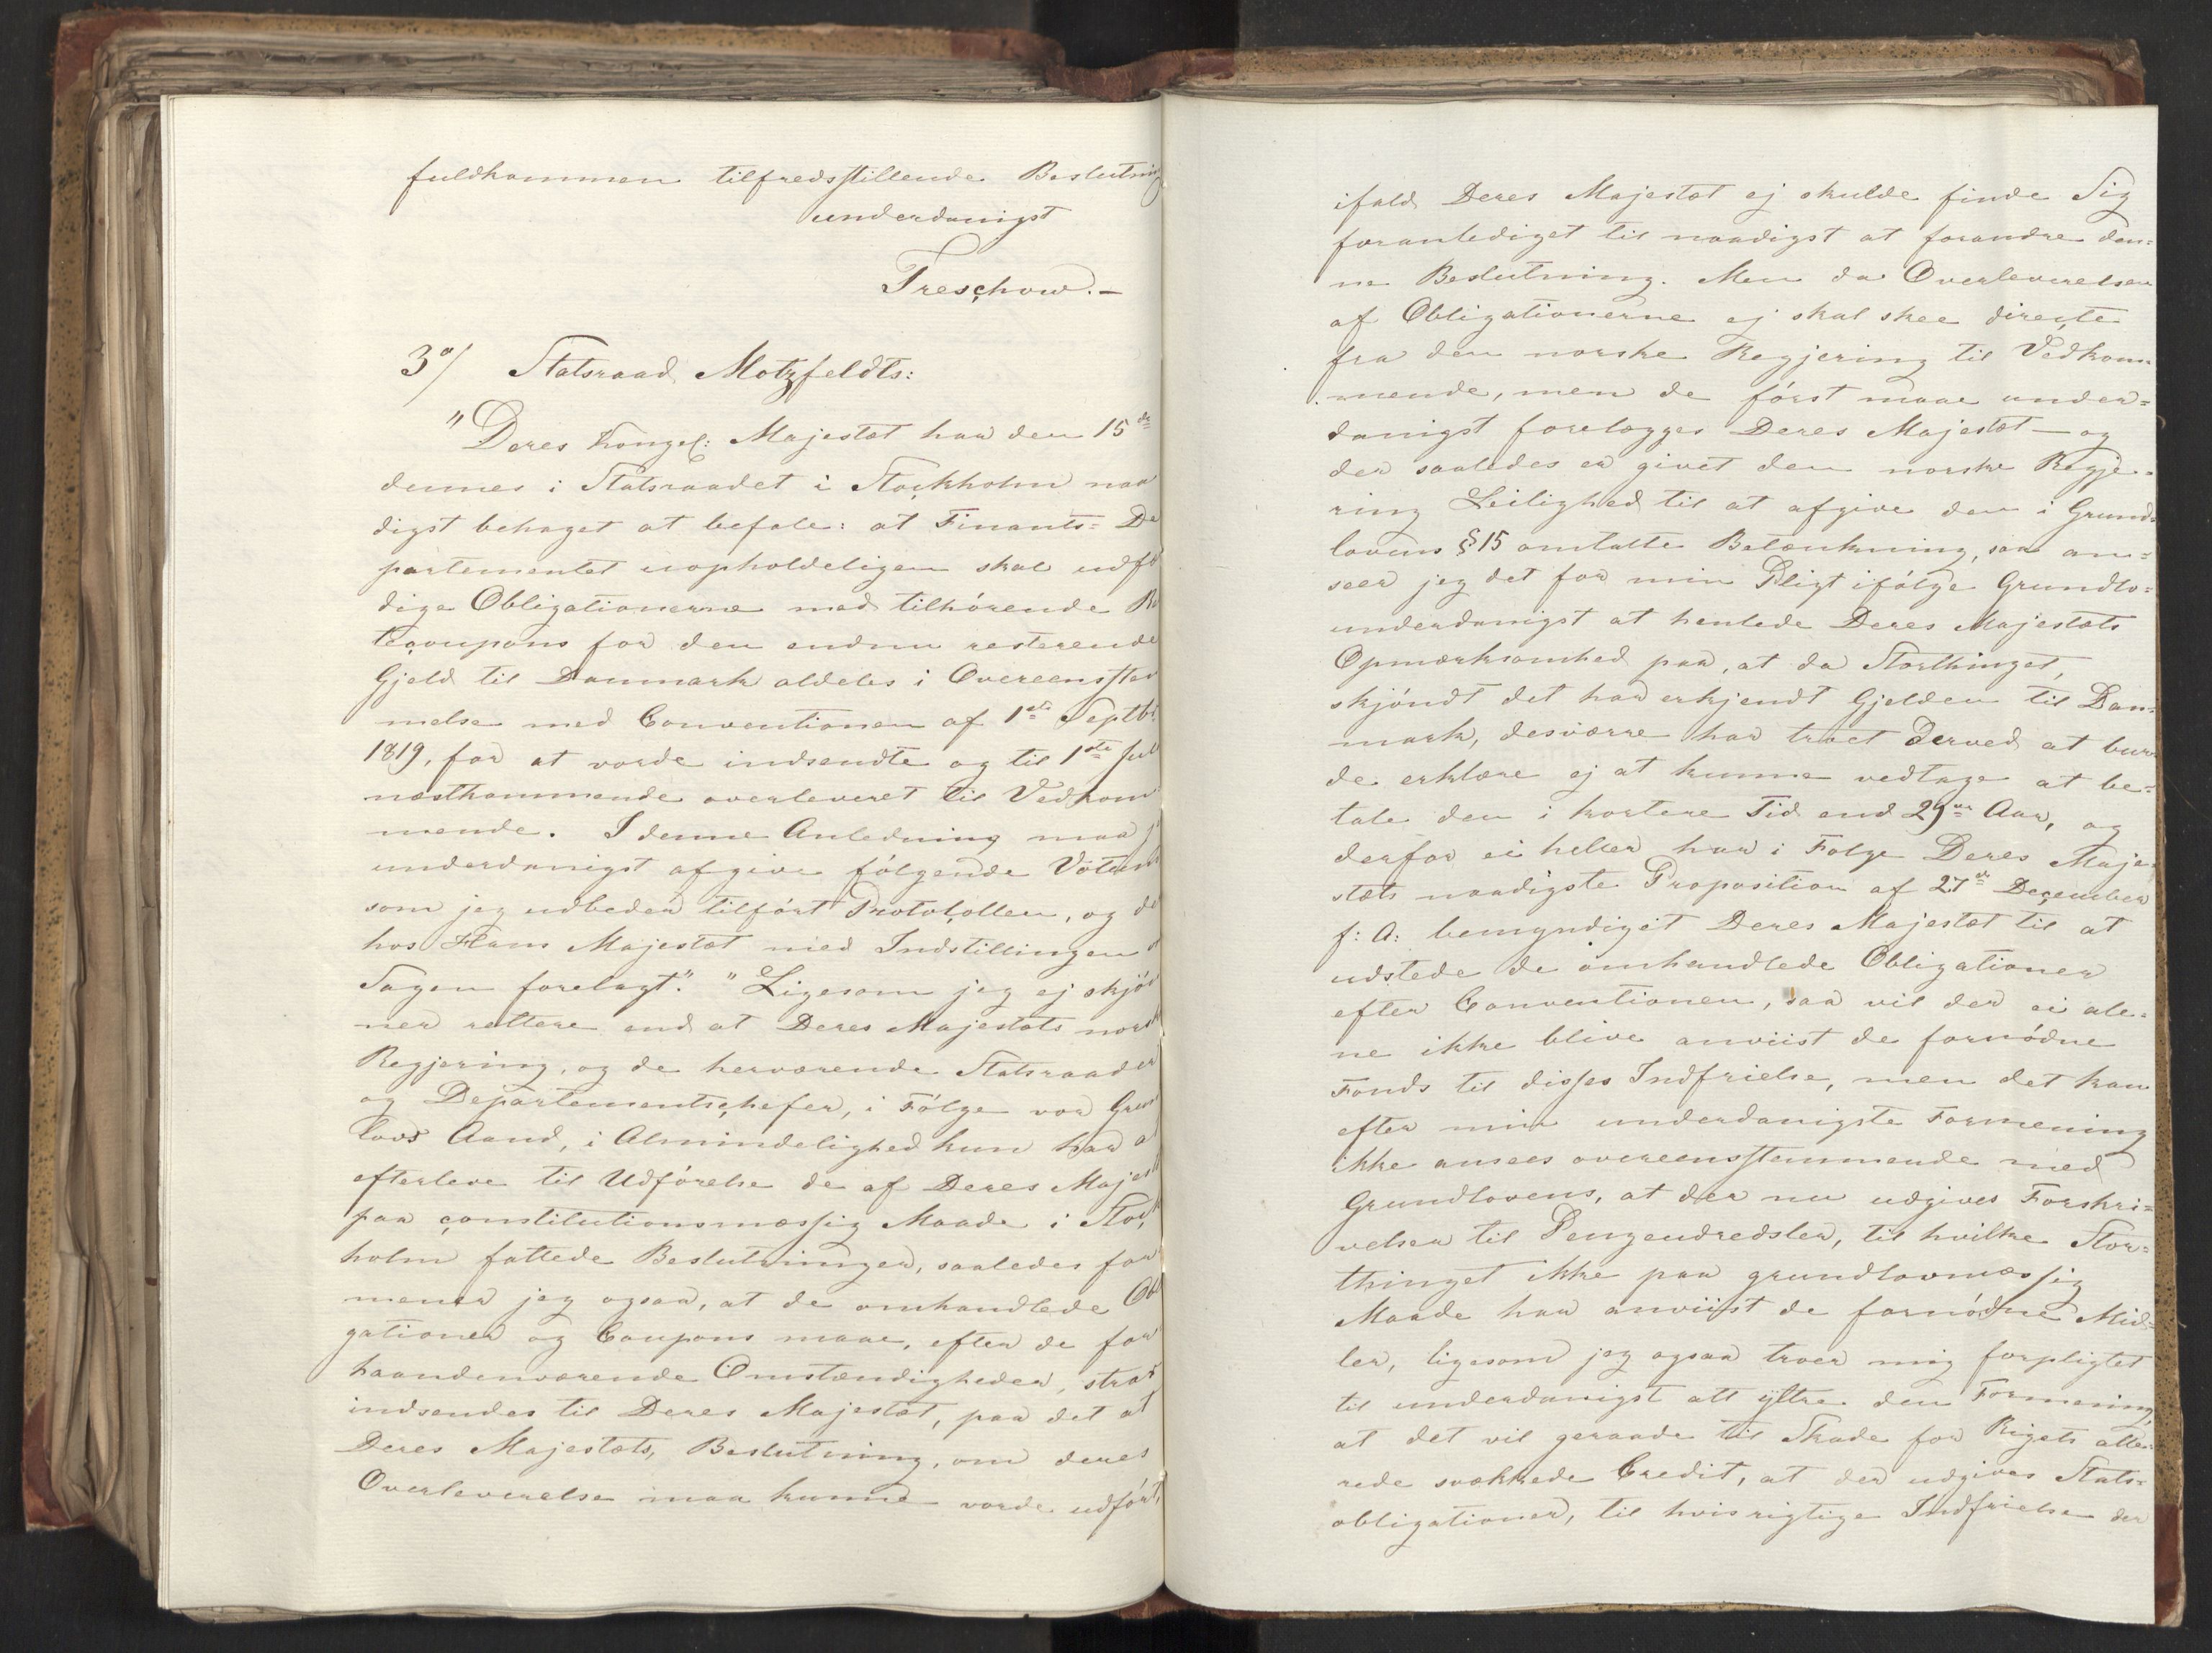 fuldkommen tilfredsstillende Beslutning
underdanigst
Treschow.-
3º/ Statsraad Motzfeldts:
"Deres Kongel: Majestæt har den 15de
dennes i Statsraadet i Stockholm naa
digst behaget at befale: at Finants= De
partementet uopholdeligen skal udfær
dige Obligationerne med tilhørende Ren
tecoupons for den endnu resterende
Gjeld til Danmark aldeles i Overeensstem
melse med Conventionen af 1ste Septbr
1819, for at vorde indsendte og til 1ste Juli
næstkommende overleveret til Vedkom
mende. I denne Anledning maa jeg
underdanigst afgive følgende Votum
som jeg udbeder tilført Protokollen, og der
hos Hans Majestæt med Indstillingen i
Sagen forelagt." "Ligesom jeg ej skjøn
ner rettere end at Deres Majestæts norske
Regjering, og de herværende Statsraader
og Departementschefer, i Følge vor Grund
lovs Aand, i Almindelighed kun har at
efterleve til Udførelse de af Deres Majestæt
paa constitutionsmæssig Maade i Stock
holm fattede Beslutninger, saaledes for
mener jeg ogsaa, at de omhandlede Obli
gationer og Coupons maae, efter de for
haandenværende Omstændigheder, strax
indsendes til Deres Majestæt, paa det at
Deres Majestæts Beslutning, om deres
Overleverelse maa kunne vorde udført,
ifald Deres Majestæt ej skulde finde Sig
foranlediget til naadigst at forandre den=
ne Beslutning. Men da Overleverelsen
af Obligationerne ej skal skee directe
fra den norske Regjering til Vedkom=
mende, men de først maae under=
danigst forelægges Deres Majestæt - og
der saaledes er givet den norske Regje=
ring Leilighed til at afgive den i Grund=
lovens §15 omtalte Betænkning, saa an=
seer jeg det for min Pligt ifølge Grundlo=
underdanigst at henlede Deres Majestæts
Opmærksomhed paa, at da Storthinget,
skjøndt det har erkjendt Gjelden til Dan=
mark, desværre har troet derved at bur=
de erklære ej at kunne vedtage at be=
tale den i kortere Tid end 29ve Aar, og
derfor ei heller har i Følge Deres Maje=
stæts naadigste Proposition af 27de December
f: A: bemyndiget Deres Majestæt til at
udstede de omhandlede Obligationer
efter Conventionen, saa vil der ei ale=
ne ikke blive anviist de fornødne
Fonds til disses Indfrielse, men det kan
efter min underdanigste Formening
ikke ansees overeensstemmende med
Grundlovens, at der nu udgives Forskri=
velser til Pengeudredsler, til hvilke Stor=
thinget ikke paa grundlovmæssig
Maade har anviist de fornødne Mid=
ler, ligesom jeg ogsaa troer mig forpligtet
til underdanigst att yttre den Formening,
at det vil geraade til Skade for Rigets alle=
rede svækkede Credit, at der udgives Stats=
obligationer, til hvis rigtige Indfrielse der